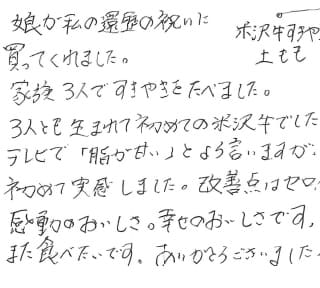 娘が私の還暦の祝いに
買ってくれました。
米沢牛すきや
土もも
家族3人ですきやきをたべました。
3人とも生まれて初めての米沢牛でした
テレビで「脂が甘い」とよう言いますが、
初めて実感しました。改善点はゼロ
感動のおいしさ。幸せのおいしさです,
また食べたいです。ありがとうございました